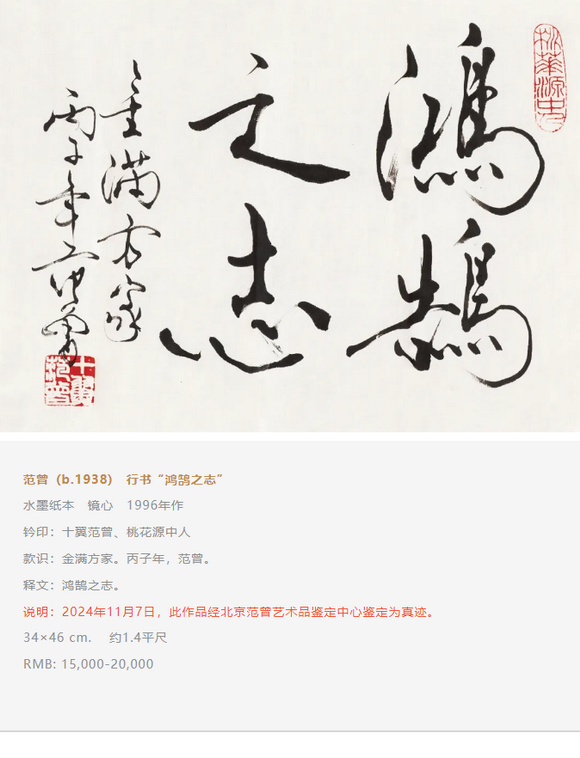 鸿鹄
之志
金满方家
丙子年范曾
桃花源中人
十翼范曾
范曾（b.1938） 行书“鸿鹄之志”
水墨纸本 镜心 1996年作
钤印：十翼范曾、桃花源中人
款识：金满方家。丙子年，范曾。
释文：鸿鹄之志。
说明：2024年11月7日，此作品经北京范曾艺术品鉴定中心鉴定为真迹。
34×46 cm. 约1.4平尺
RMB: 15,000-20,000